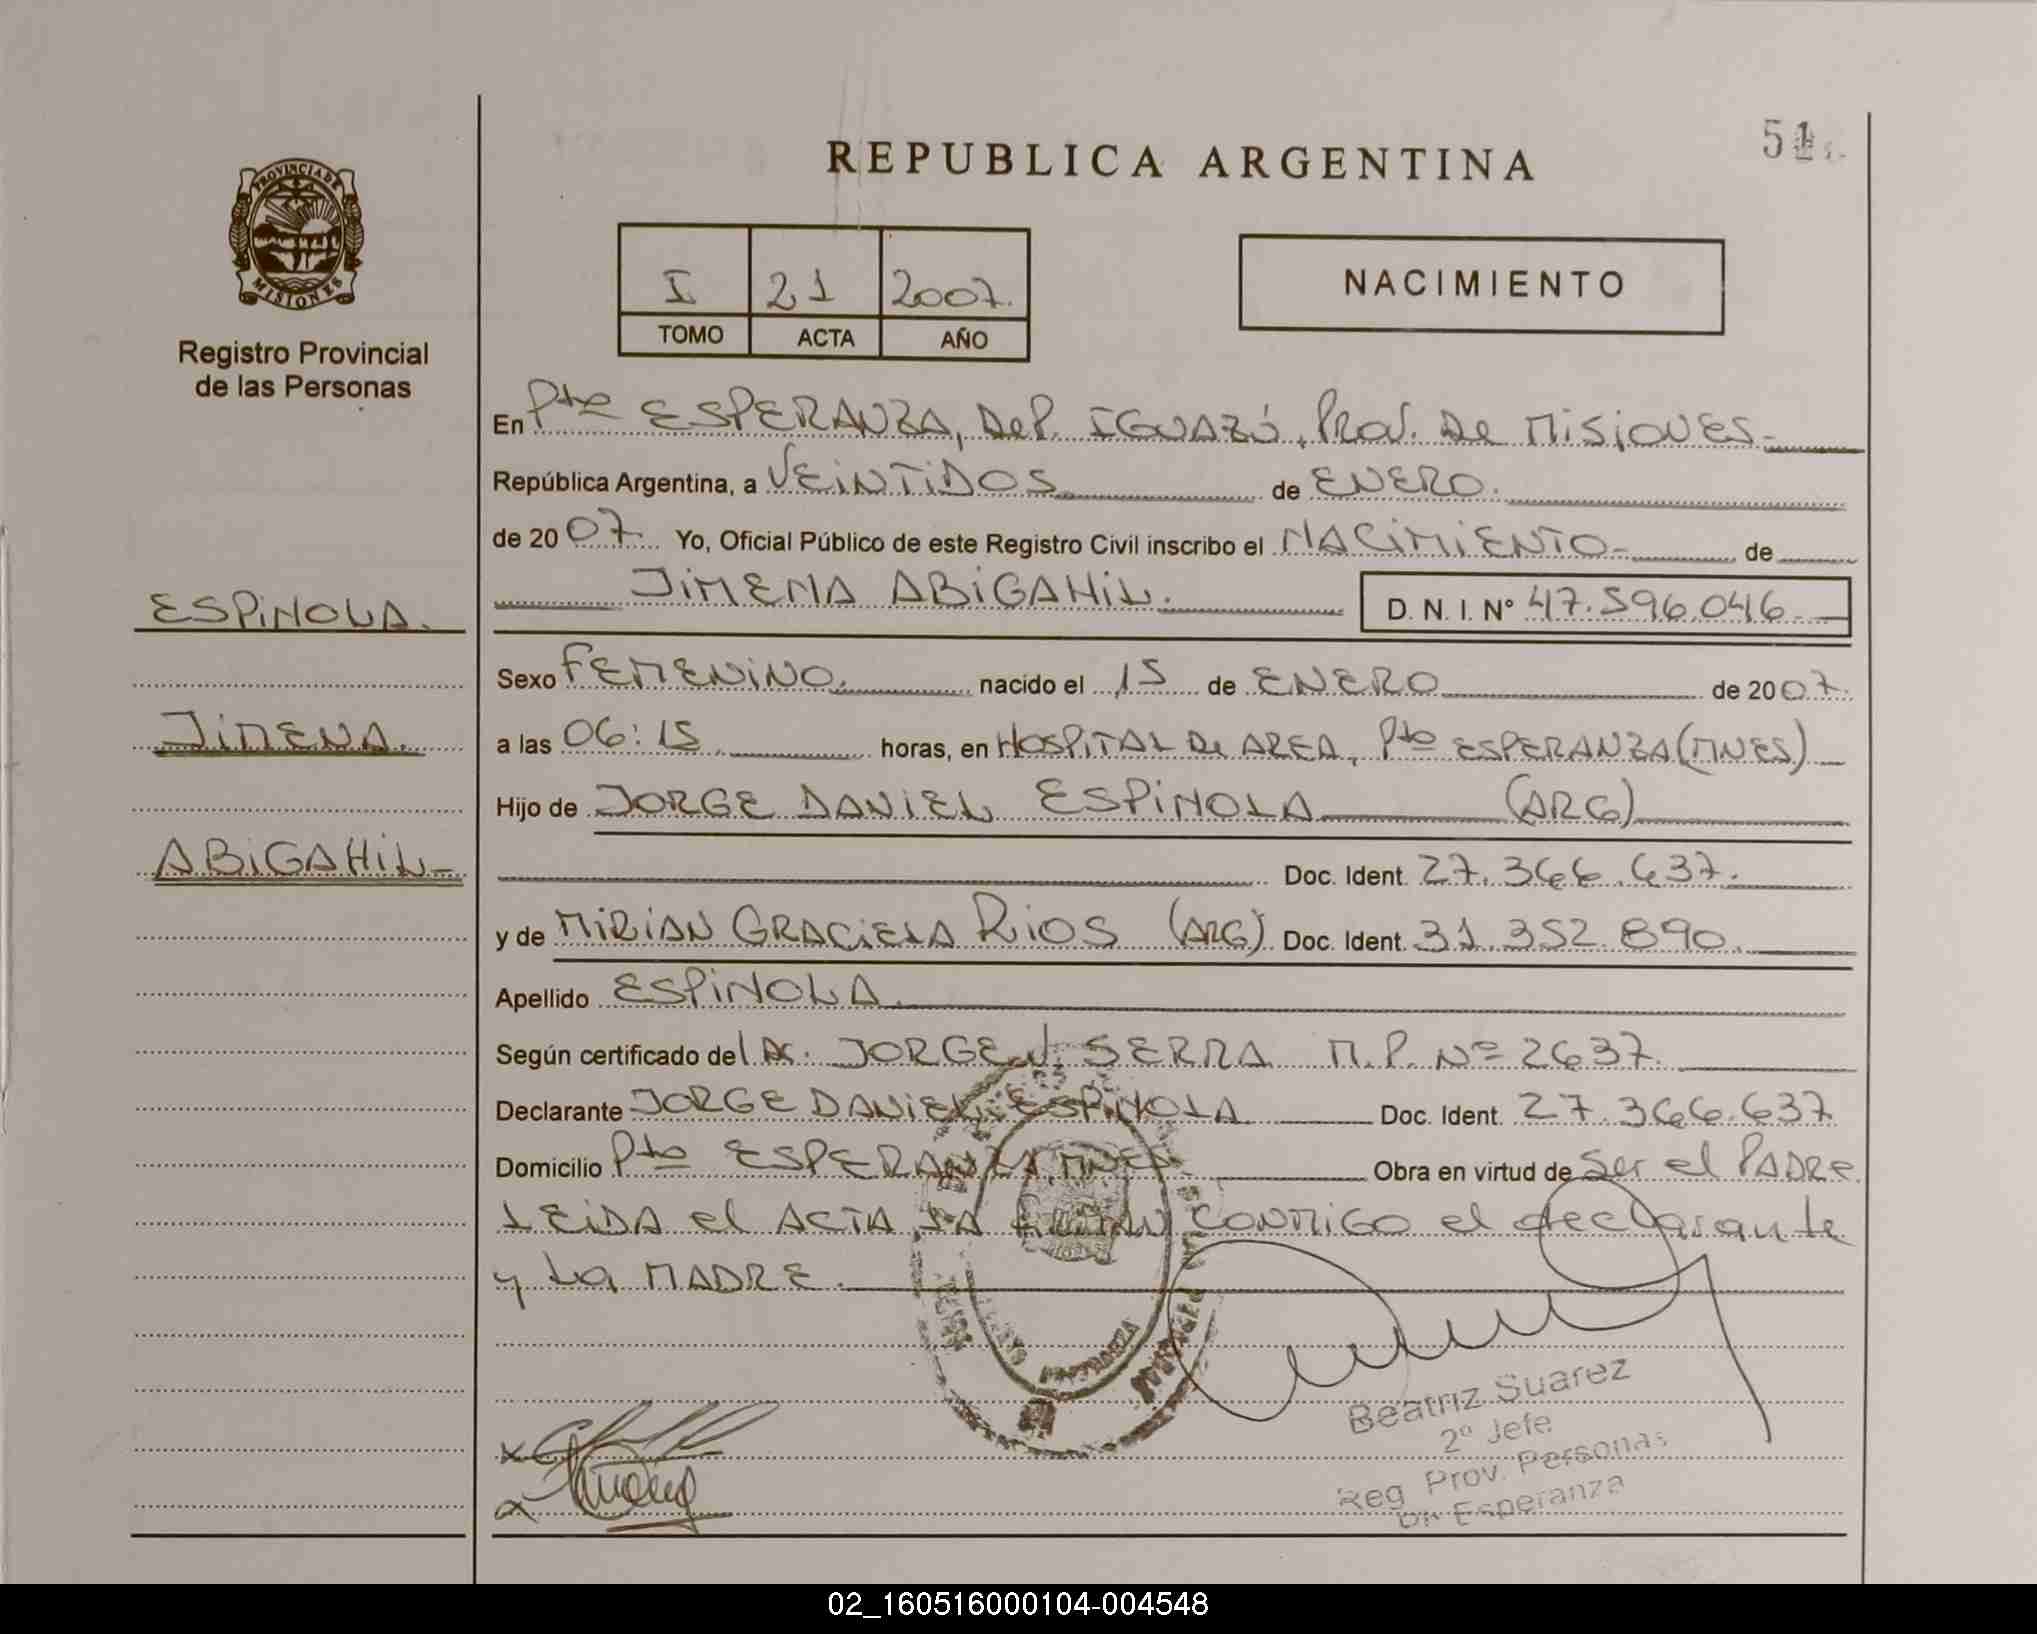 REPUBLICA ARGENTINA
PROVINCIA DE
MISIONES
Registro Provincial
de las Personas
I 21 2007.
TOMO ACTA AÑO
NACIMIENTO
En Pto ESPERANZA, Dep. IGUAZÚ, Prov. De Misiones
República Argentina, a VEINTIDOS de ENERO.
de 2007. Yo, Oficial Público de este Registro Civil inscribo el NACIMIENTO de
ESPINOLA.
JIMENA ABIGAHIL. D. N. I. N° 47.596.046.
Sexo FEMENINO. nacido el 15 de ENERO de 2007.
JIMENA.
a las 06:15 horas, en HOSPITAL De AREA, Pto ESPERANZA (MNES)
Hijo de JORGE DANIEL ESPINOLA (ARG)
ABIGAHIL-
Doc. Ident. 27.366.637.
y de MIRIAN GRACIELA RIOS (ARG) Doc. Ident. 31.352.890.
Apellido ESPINOLA.
Según certificado del Dr. JORGE J. SERRA M.P. Nº 2637.
Declarante JORGE DANIEL ESPINOLA Doc. Ident. 27.366.637
Domicilio Pto ESPERANZA, MNES Obra en virtud de Ser el PADRE
LEIDA el ACTA LA FIRMAN CONMIGO el declarante
y La MADRE.
PUERTO ESPERANZA
Beatriz Suarez
2º Jefe
Reg Prov. Personas
Esperanza
02_160516000104-004548